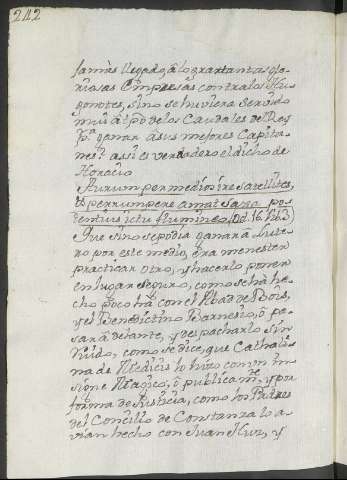 242
Jamàs llegado à lograr tantas glo-
riosas Empresas contra los Hu-
gonotes, sino se huviera servido
mui à lpõ de los Caudales de Rey
pª ganar à sus mejores Capita-
nes? assi es verdadero el dicho de
Horacio
Aurum per medio ire satellites,
& perrumpere amat saxa po-
tentius ictu flumineo, Od. 16. Li. 3)
Que sino se podia ganar à Lute-
ro por este medio, era menester
practicar otro, y hacerlo poner
en lugar seguro, como se hà he-
cho poco hà con el Abad de Bois,
y el Benedictino Barnesio, ò pa-
sar adelante, y despacharlo sin
ruido, como se dice, que Cathali-
na de Medicis lo hizo con un In-
signe Magico, ò publicamte, y por
forma de Justicia, como los Padres
del Concilio de Constanza lo a-
vian hecho con Juan Hus, y